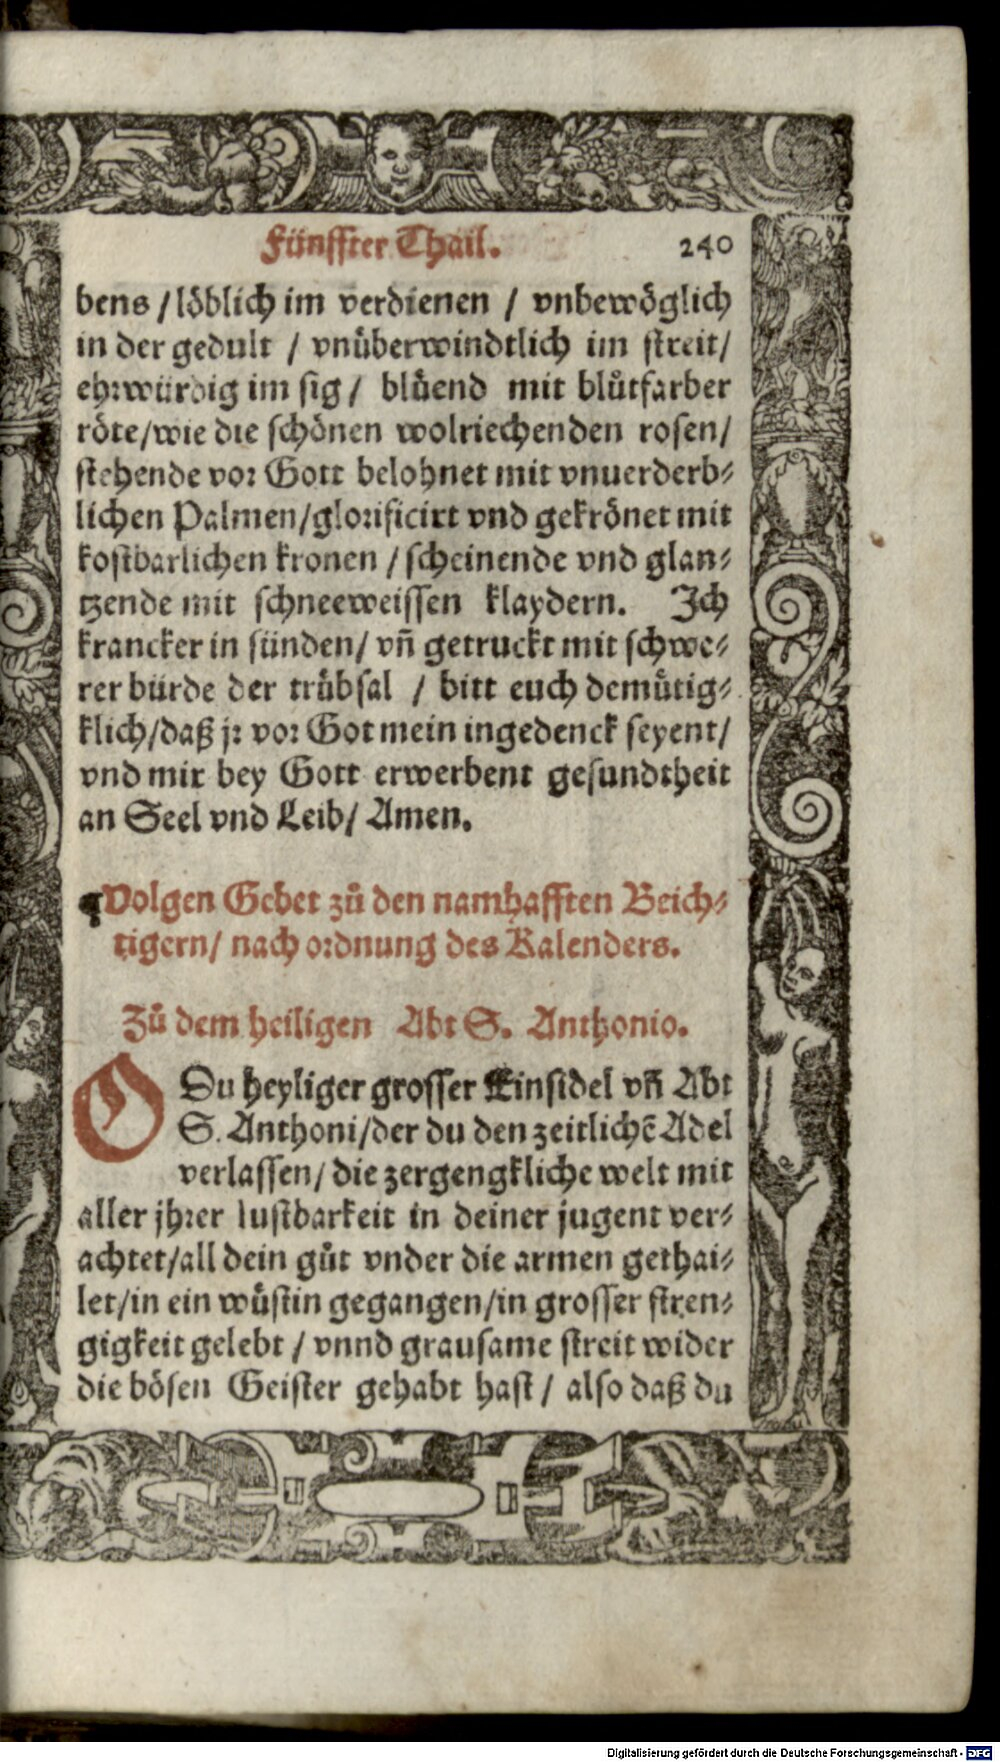 Fünffter Thail. 240
bens / löblich im verdienen / vnbewöglich
in der gedult / vnüberwindtlich im streit/
ehrwürdig im sig / blüend mit blůtfarber
röte/wie die schönen wolriechenden rosen/
stehende vor Gott belohnet mit vnuerderb⸗
lichen Palmen/glorificirt vnd gekrönet mit
kostbarlichen kronen / scheinende vnd glan⸗
tzende mit schneeweissen klaydern. Ich
krancker in sünden/ vñ getruckt mit schwe⸗
rer bürde der trübsal / bitt euch demütig⸗
klich/daß jr vor Got mein ingedenck seyent/
vnd mir bey Gott erwerbent gesundtheit
an Seel vnd Leib/ Amen.
¶Volgen Gebet zů den namhafften Beich⸗
tigern/ nach ordnung des Kalenders.
Zů dem heiligen Abt S. Anthonio.
O Du heyliger grosser Einsidel vñ Abt
S. Anthoni/der du den zeitlichē Adel
verlassen/ die zergengkliche welt mit
aller jhrer lustbarkeit in deiner jugent ver⸗
achtet/all dein gůt vnder die armen gethai⸗
let/in ein wüstin gegangen/in grosser stren⸗
gigkeit gelebt / vnnd grausame streit wider
die bösen Geister gehabt hast / also daß du
Digitalisierung gefördert durch die Deutsche Forschungsgemeinschaft - DFG